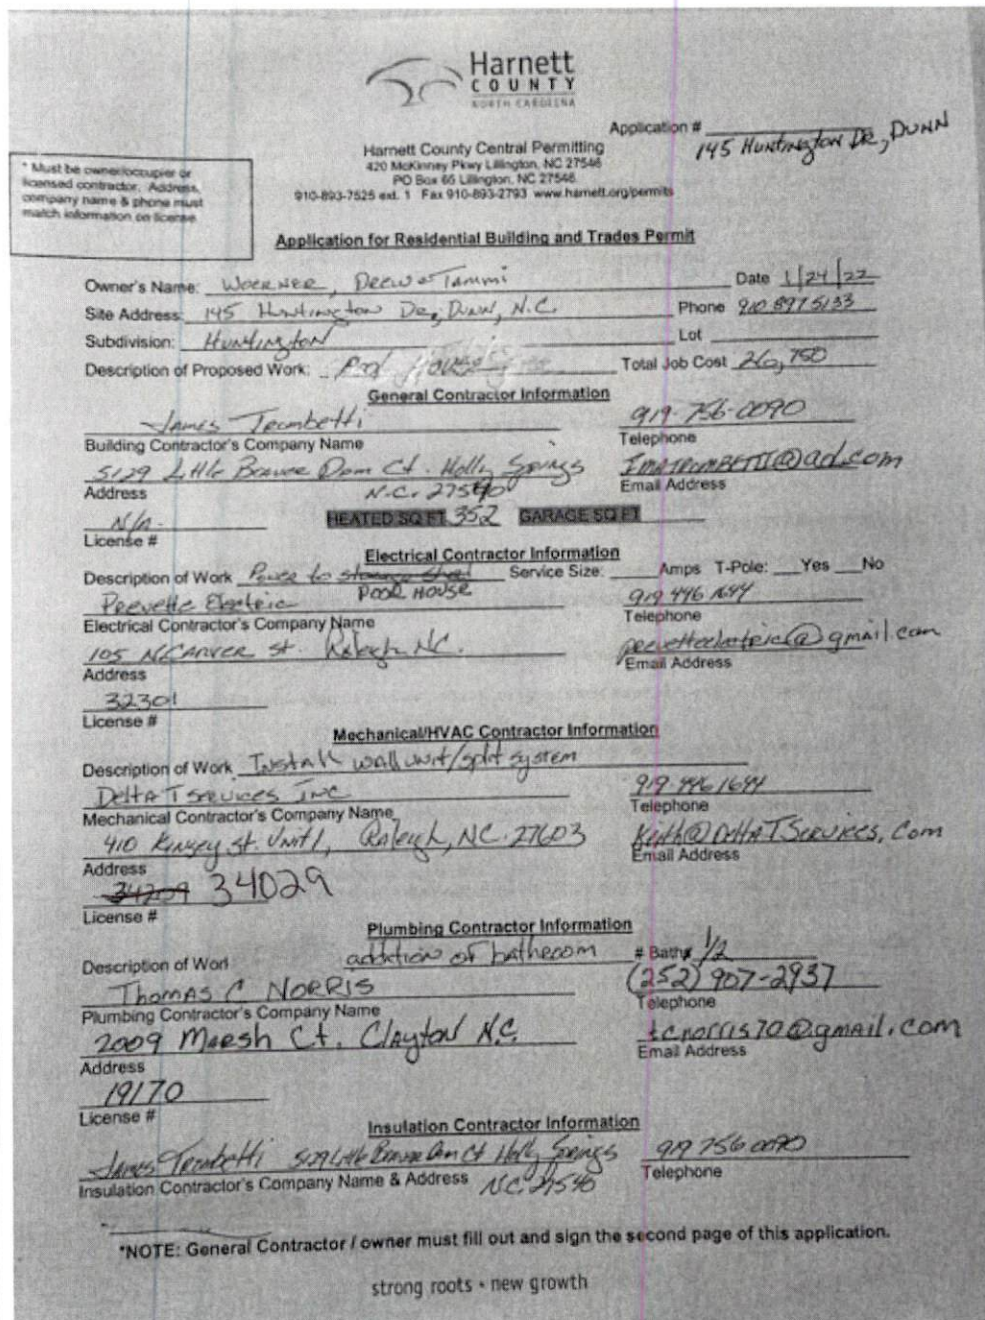 Harnett
COUNTY
NORTH CAROLINA
Application #
145 Huntington DR, DUNN
Harnett County Central Permitting
420 McKinney Pkwy Lillington, NC 27546
PO Box 65 Lillington, NC 27546
910-893-7525 ext. 1 Fax 910-893-2793 www.harnett.org/permits
* Must be owner/occupier or
licensed contractor. Address,
company name & phone must
match information on license
Application for Residential Building and Trades Permit
Owner's Name: WOERNER, DREW & Tammi Date 1/24/22
Site Address: 145 Huntington DR, DUNN, N.C. Phone 910 897 5133
Subdivision: Huntington Lot
Description of Proposed Work: Pool House Total Job Cost 26,750
General Contractor Information
James Trombetti 919-756-0090
Building Contractor's Company Name Telephone
5129 Little Beaver Dam Ct. Holly Springs IMATROMBETTI@aol.com
Address N.C. 27540 Email Address
N/A. HEATED SQ FT 352 GARAGE SQ FT
License #
Electrical Contractor Information
Description of Work Power to storage shed Service Size: Amps T-Pole: Yes No
Prevette Electric POOL HOUSE 919 446 1644
Electrical Contractor's Company Name Telephone
105 N CARVER St. Raleigh NC. prevetteelectric@gmail.com
Address Email Address
32301
License #
Mechanical/HVAC Contractor Information
Description of Work Install wall unit/split system
Delta T Services Inc 919-446 1644
Mechanical Contractor's Company Name Telephone
410 Kinsey St. Unit 1, Raleigh, NC. 27603 Keith@DeltaTServices.com
Address Email Address
34209 34029
License #
Plumbing Contractor Information
Description of Work addition of bathroom # Baths 1/2
Thomas C NORRIS (252) 907-2937
Plumbing Contractor's Company Name Telephone
2009 Marsh Ct. Clayton N.C. tcnorris70@gmail.com
Address Email Address
19170
License #
Insulation Contractor Information
James Trombetti 5129 Little Beaver Dam Ct Holly Springs 919 756 0090
Insulation Contractor's Company Name & Address N.C. 27540 Telephone
*NOTE: General Contractor / owner must fill out and sign the second page of this application.
strong roots • new growth